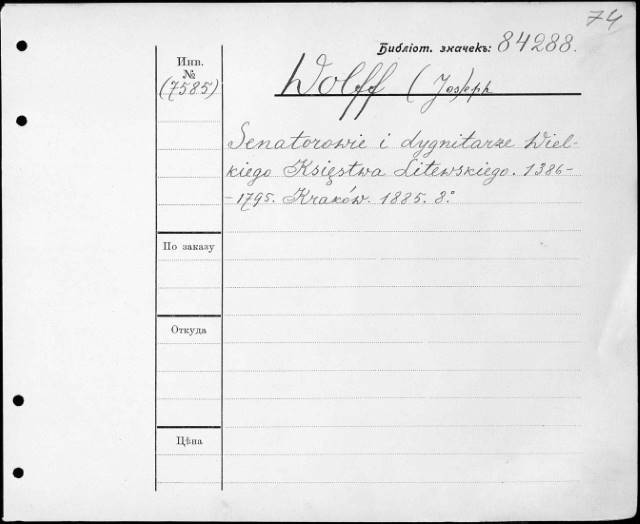 74
Библіот. значекъ: 84288.
Инв.
№
(7585)
Wolff (Joseph
Senatorowie i dygnitarze Wiel-
kiego Księstwa Litewskiego. 1386-
-1795. Kraków. 1885. 8°.
По заказу
Откуда
Цѣна